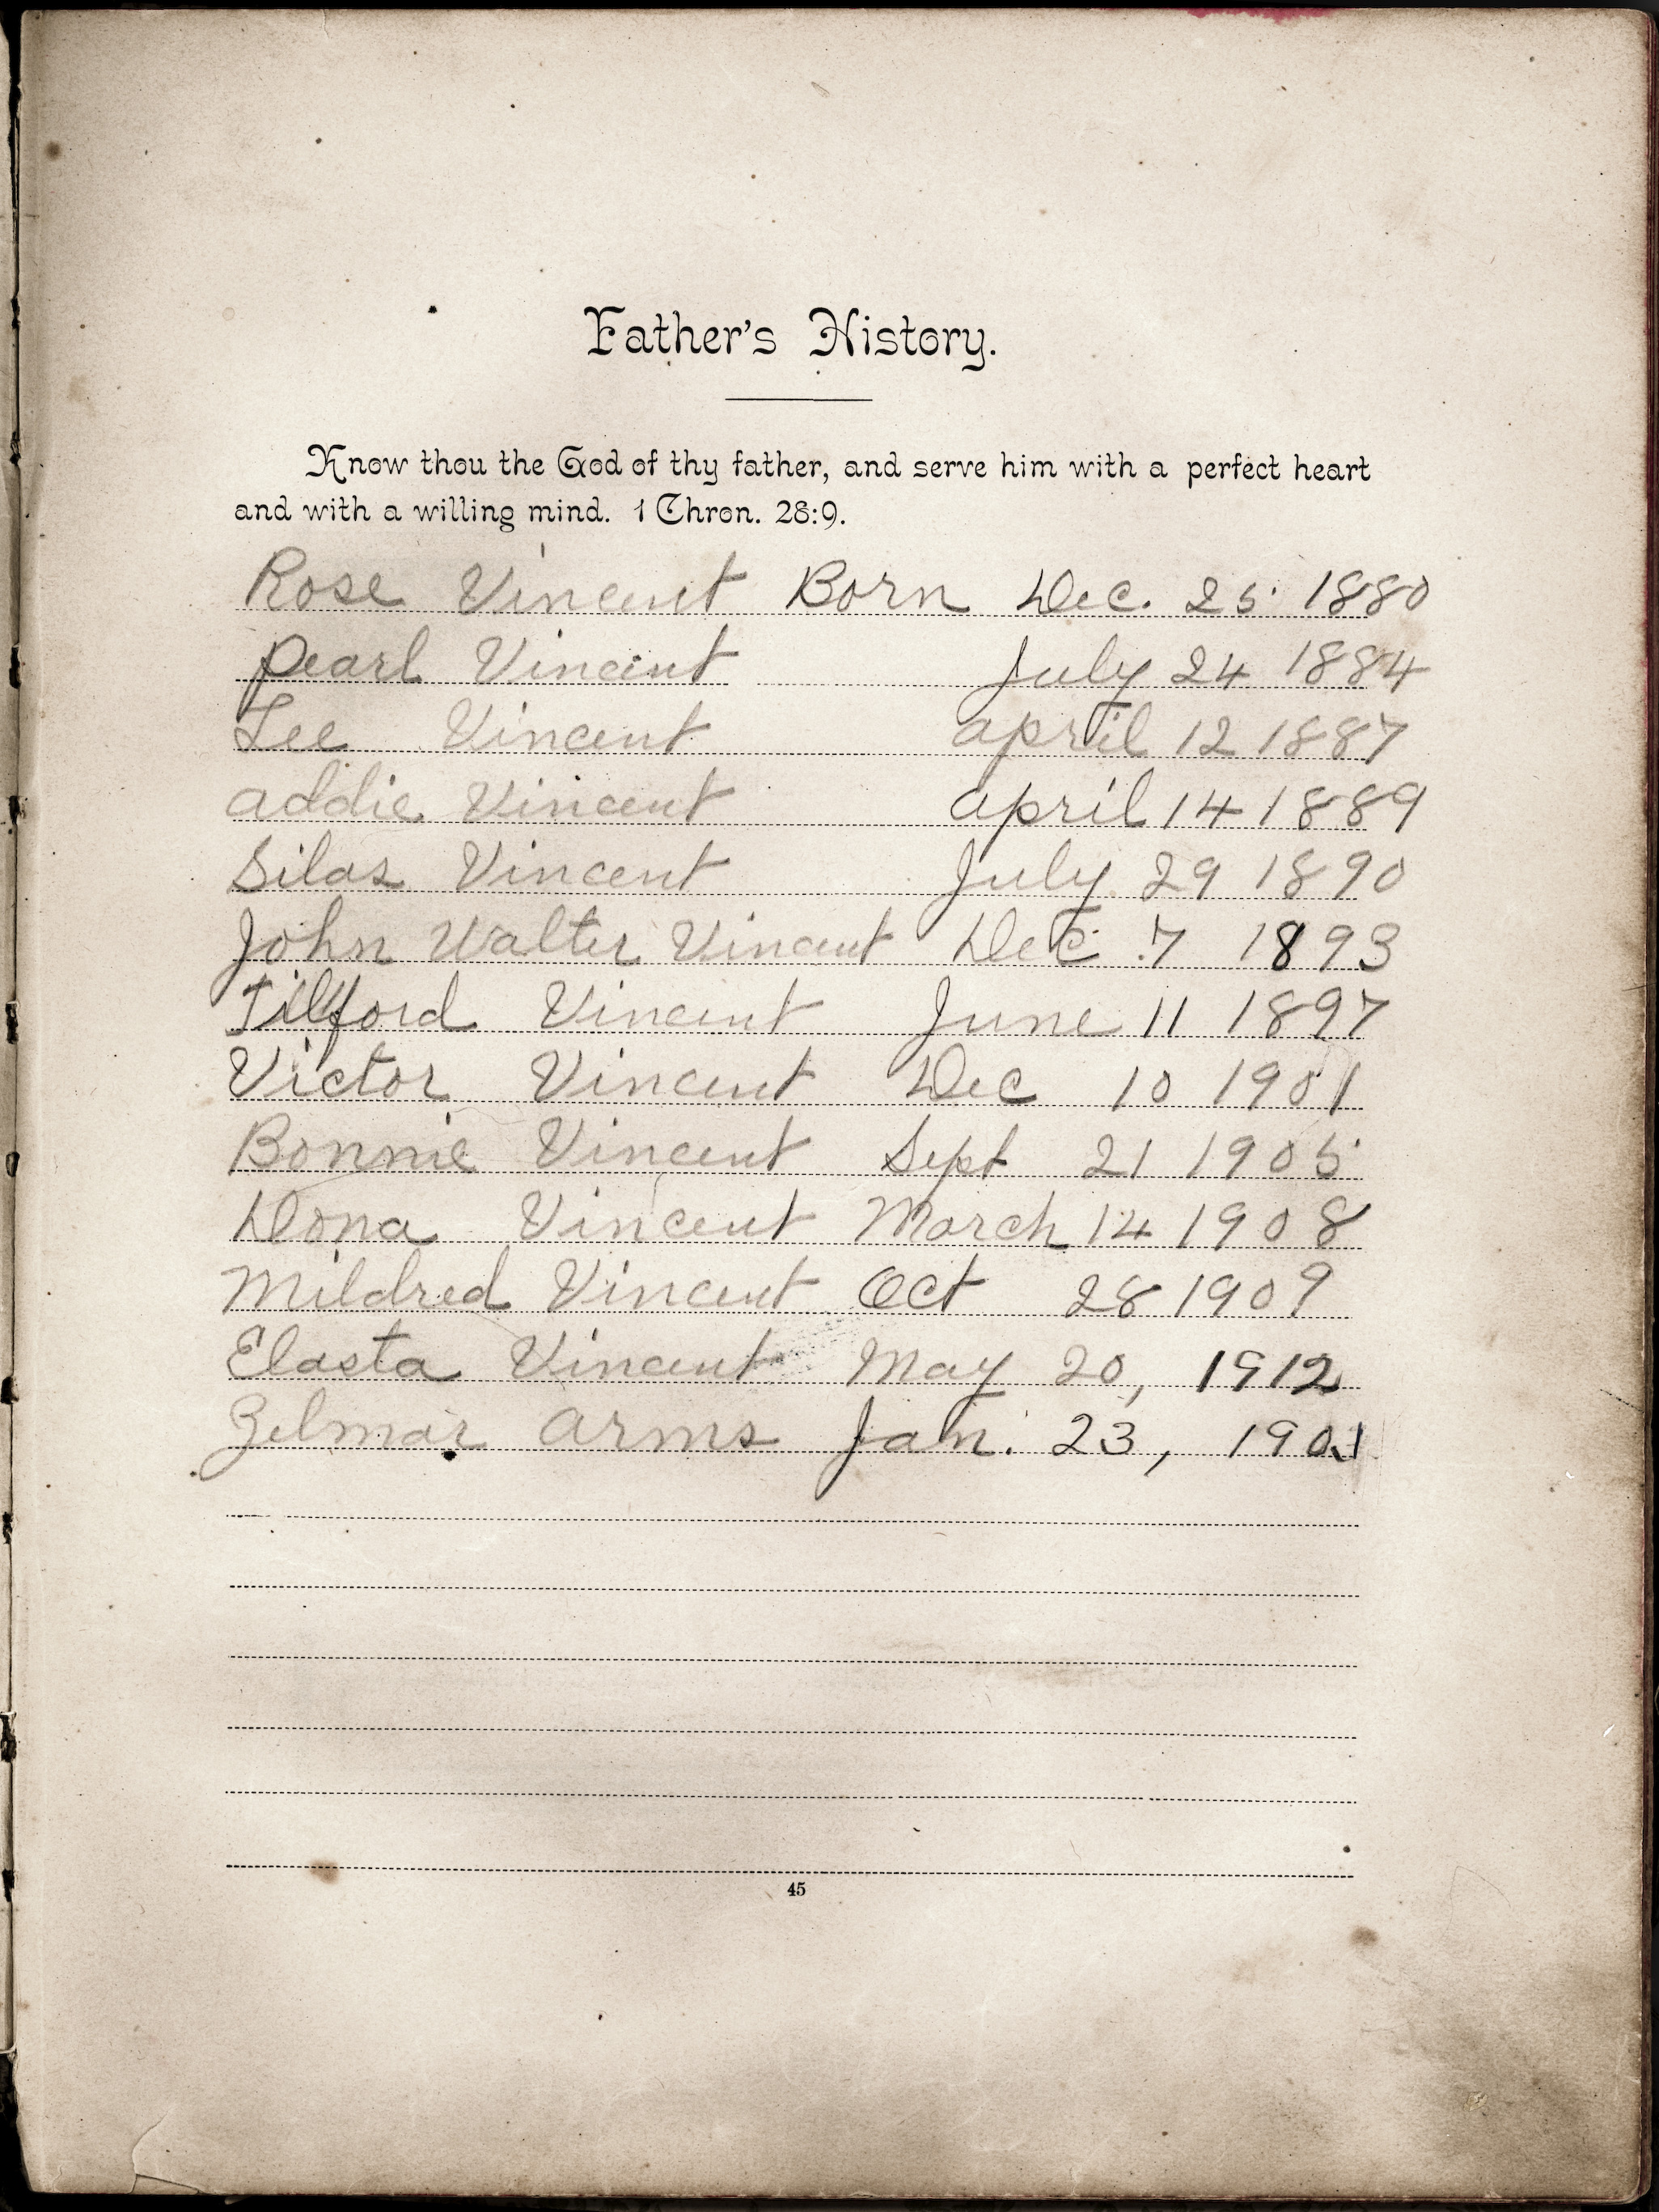 Father's History.
Know thou the God of thy father, and serve him with a perfect heart
and with a willing mind. 1 Chron. 28:9.
Rose Vincent Born Dec. 25 1880
Pearl Vincent July 24 1884
Lee Vincent april 12 1887
addie Vincent april 14 1889
Silas Vincent July 29 1890
John Walter Vincent Dec. 7 1893
Tilford Vincent June 11 1897
Victor Vincent Dec 10 1901
Bonnie Vincent Sept 21 1905
Dona Vincent March 14 1908
Mildred Vincent Oct 28 1909
Elasta Vincent May 20, 1912
Zelmar arms Jan. 23,
45